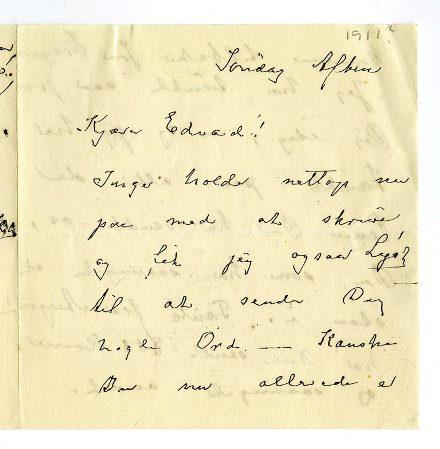 1911?
Søndag Aften
Kjære Edvard!
Inger holder nettop nu
paa med at skrive
og fik jeg ogsaa Lyst
til at sende Dig
nogle Ord — Kanske
Du nu allerede er